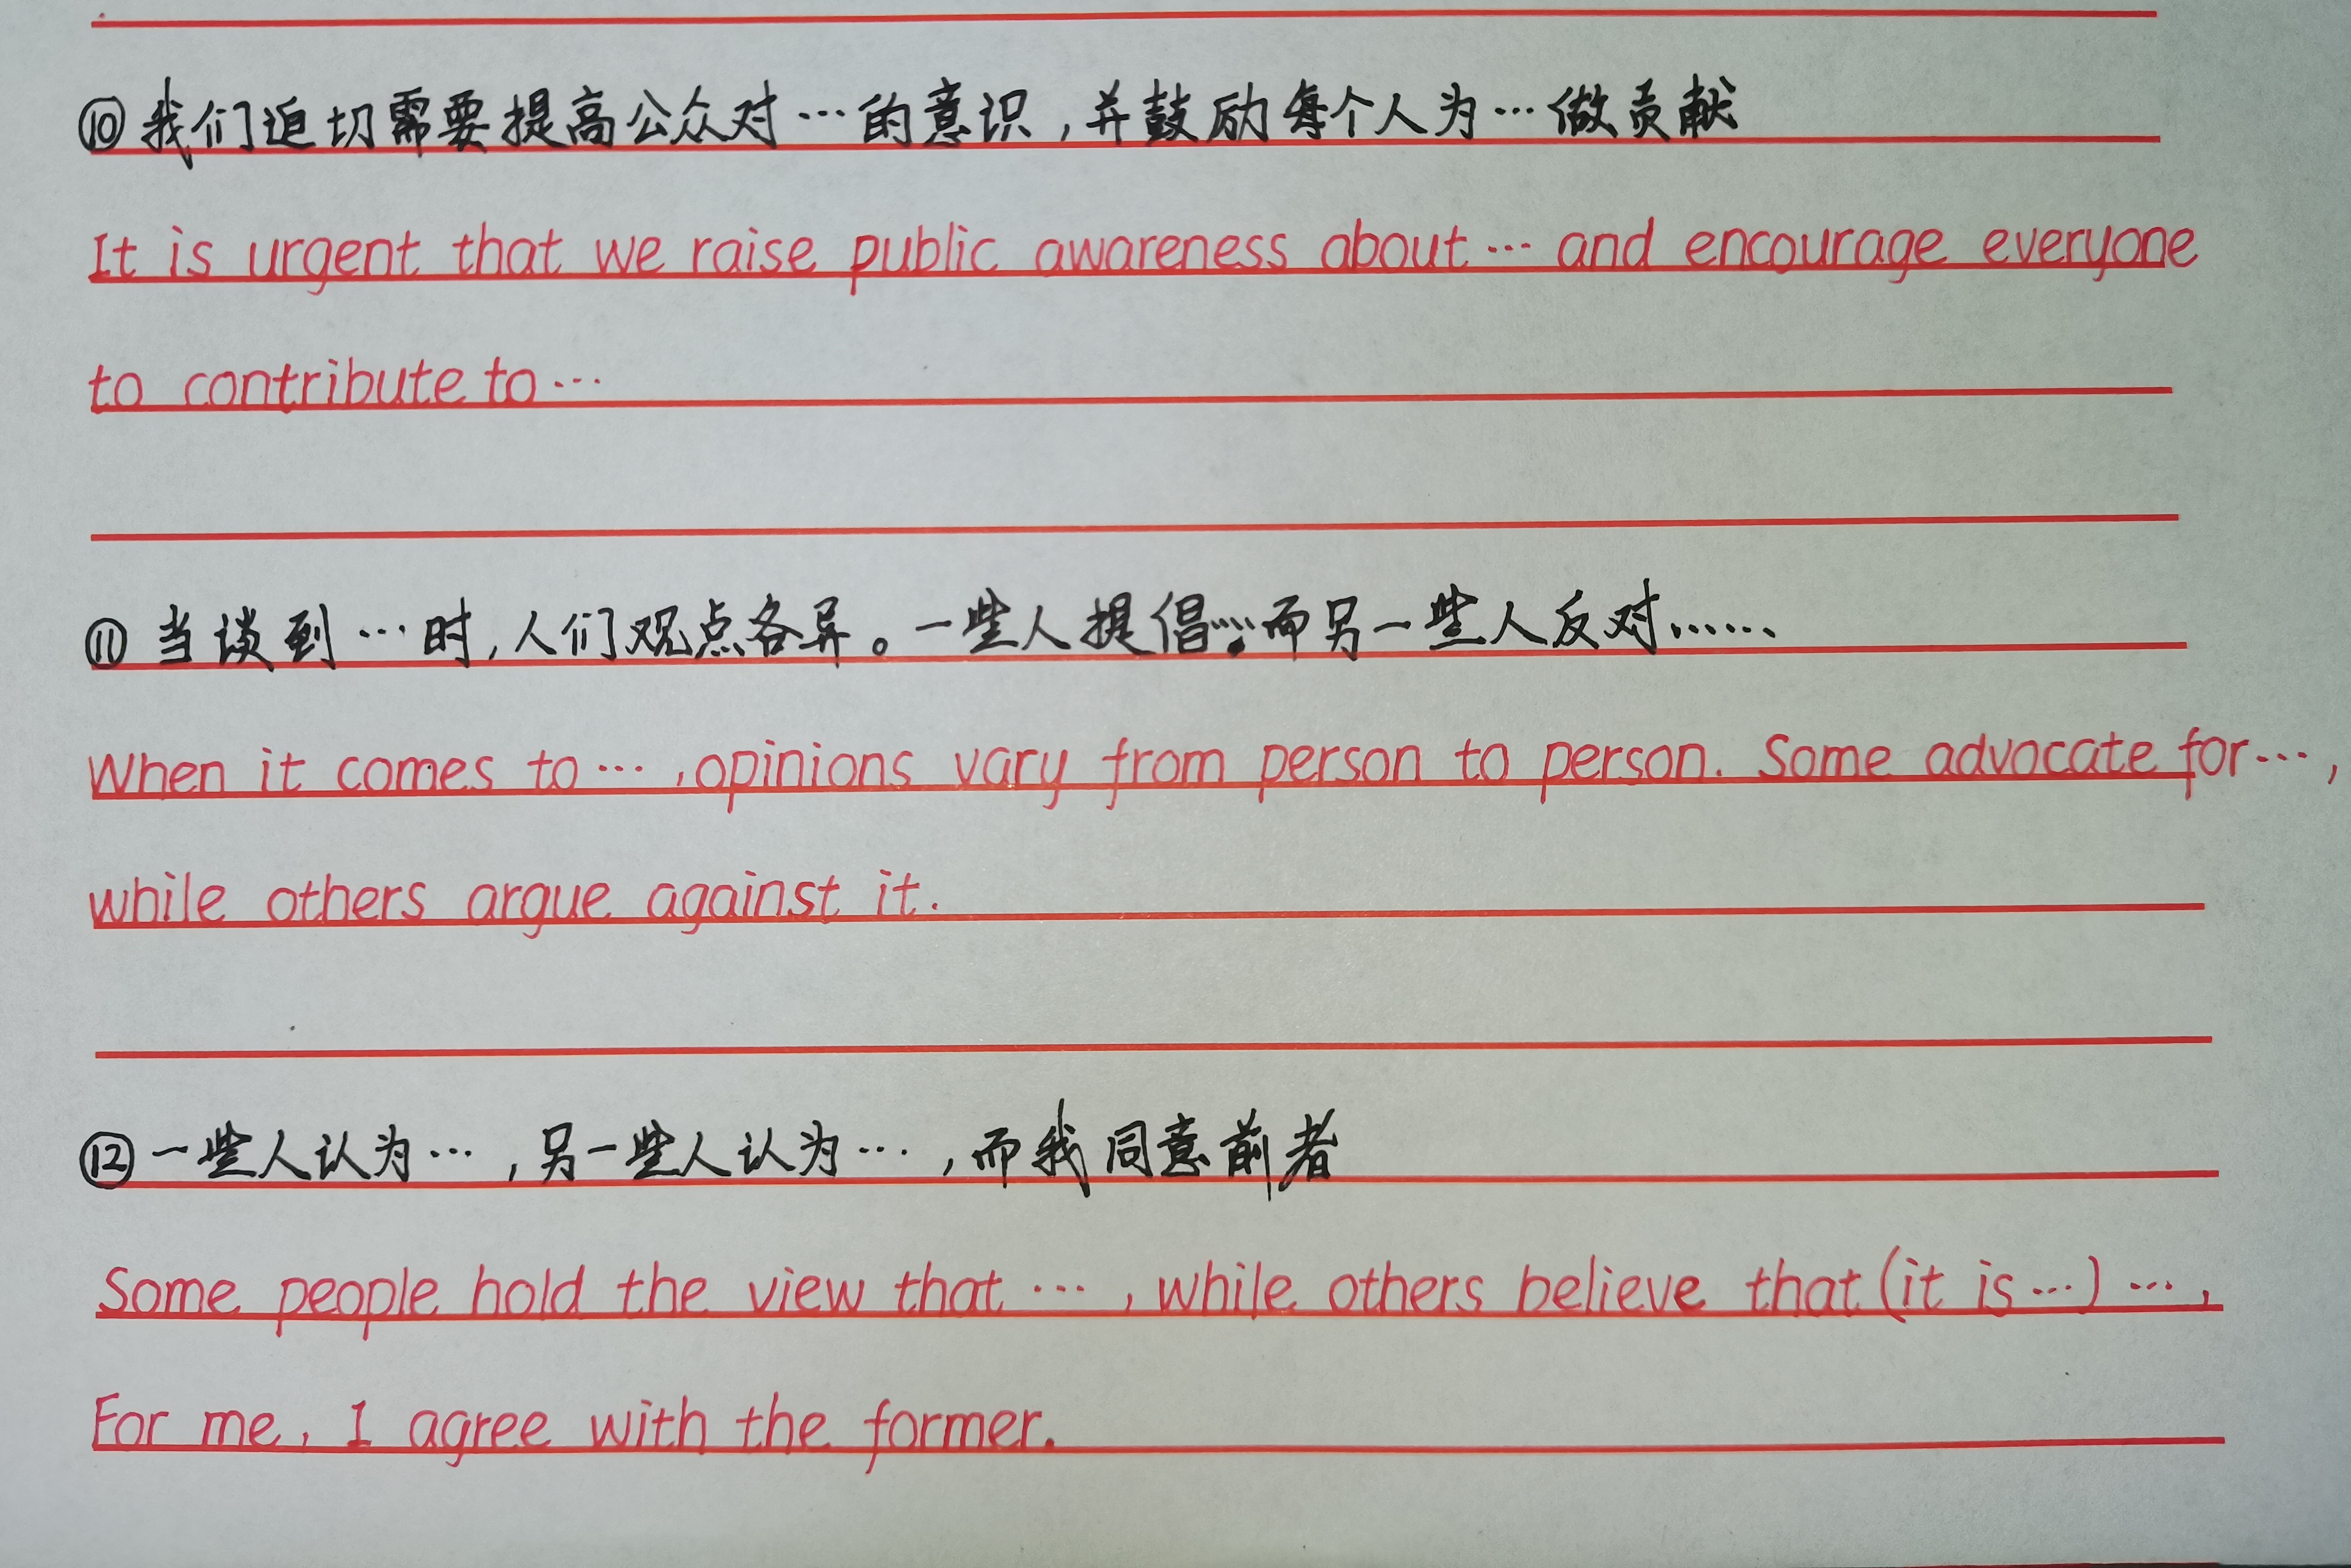 ⑩我们迫切需要提高公众对…的意识,并鼓励每个人为…做贡献
It is urgent that we raise public awareness about… and encourage everyone
to contribute to…
⑪当谈到…时,人们观点各异。一些人提倡…,而另一些人反对……
When it comes to…,opinions vary from person to person. Some advocate for…,
while others argue against it.
⑫一些人认为…,另一些人认为…,而我同意前者
Some people hold the view that…, while others believe that(it is…)…,
For me, I agree with the former.